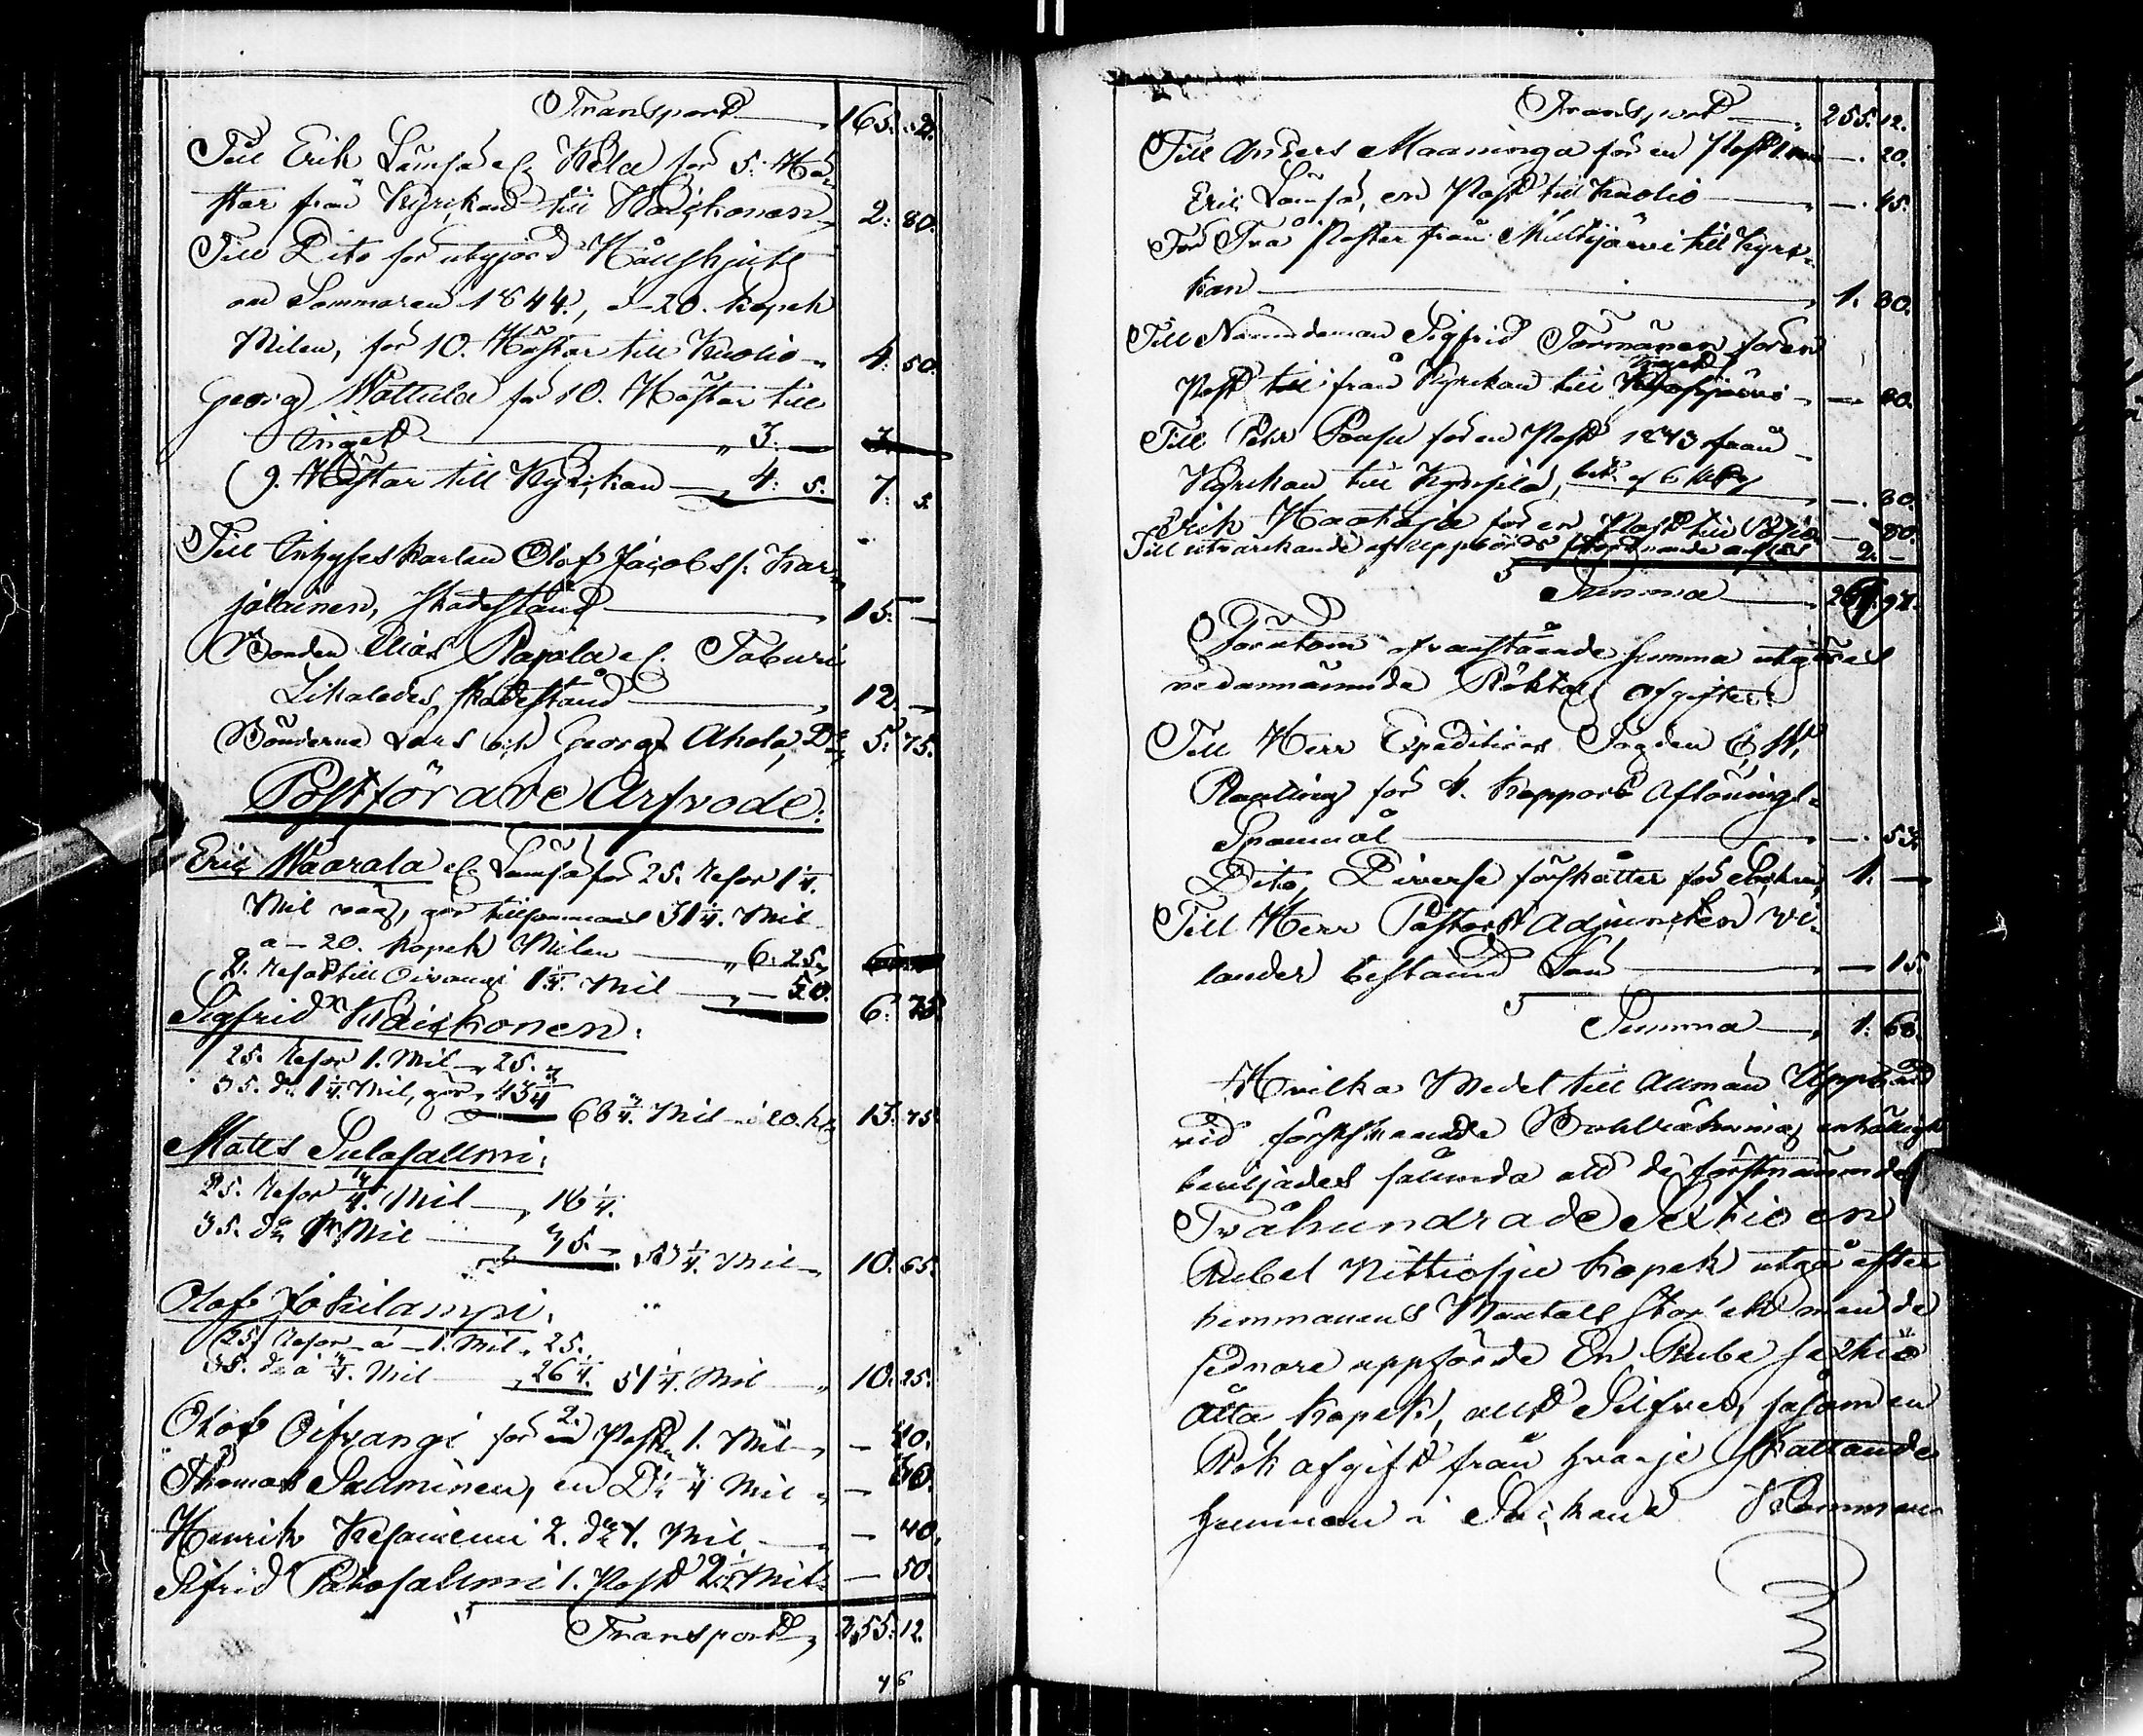 Transport 165. 2.
Till Erik Lämsä el. Wila för 5. Hä-
star från Kyrkan till Waiskonen 2. 80.
Till Dito för utgjord Hållskjuts
om Sommaren 1844, a 20. kopek
Milen, för 10. Hästar till Kuolio 4. 50.
Georg Mattila för 10. Hästar till
Tinget 3. —
9. Hästar till Kyrkan 4. 5. 7. 5.
Till Inhyseskarlen Olof Jacobss. Kar-
jalainen, skadestånd 15. —
Bonden Elias Rajala el. Taburi
Likaledes skadestånd 12. —
Bönderne Lars och Georg Ahola, Do 5. 75.
Postförare Arfvode:
Eric Waarala el. Lämsä för 25. Resor 1¼.
Mil väg, gör tillsammans 31¼. Mil
a 20. kopek Milen 6. 25.
2. Resor till Oivangi 1¼. Mil — 50. 6. 75.
Sigfrid Waiskonen:
25. Resor 1. Mil 25.
35. do 1¼. Mil, gör 43¾
68¾. Mil a 20. k. 13. 75.
Matts Sulasalmi:
25. Resor ¾. Mil 18¼.
35. do 1. Mil 35. 53¼. Mil 10. 65.
Olof Jokilampi:
25. Resor a 1. Mil. 25.
35. do a ¾. Mil 26¼. 51¼. Mil 10. 25.
Olof Oifvangi för 2. Post. 1. Mil — 40.
Thomas Salminen, en Do Mil —
Henrik Kesäniemi 2. do 1. Mil — 40.
Sifrid Patosalmi 1. Post 2½ Mil — 50.
Transport 255. 12.
Transport 255. 12.
Till Anders Maaninga för en Post — 20.
Eric Lämsä, en Post till Kuolio — 45.
För Två Poster från Multijärvi till Kyr-
kan 1. 30.
Till Nämndeman Sigfrid Törmänen för en
Post från Kyrkan till —
Till Pehr Pousu för en Post 1843 från
Kyrkan till —
Erik för en Post till — 80.
Till utvärkande af Uppbörds 2. —
Summa 261. 97.
Förutom ofvanstående summa utgöres
nedannämnde Röktals afgifter:
Till Herr Expeditions Fogden C. W.
Planting för 4. kappars Aflönings-
Spannmål — 53.
Dito, Diverse förskotter för Socknen 1. —
Till Herr Pastors Adjuncten We-
lander bestånd Lön — 15.
Summa 1. 68.
Hvilka Medel till Allmän Uppbörd
vid förestående Bokräkning enhälligt
beviljades sålunda att de förstnämnda
Tvåhundrade Sextio en
Rubel Nittiosju kopek utgå efter
hemmanens Mantals storlek men de
sednare uppförde En Rubel sextio
åtta kopek, allt Silfver, såsom en
Rök afgift från hvarje skattande
hemman i Socknen